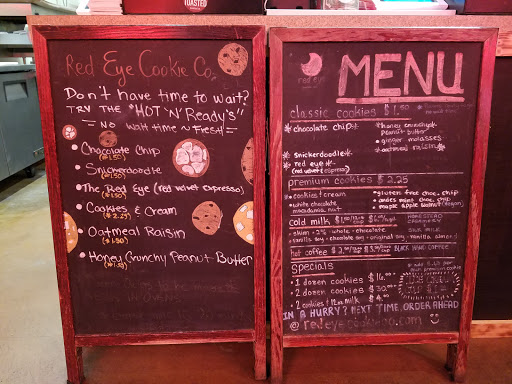 TOASTED
Red Eye Cookie Co.
Don't have time to wait?
TRY THE "HOT 'N' Ready's"
= NO wait time ~ fresh! =
• Chocolate Chip
($1.50)
• Snickerdoodle
($1.50)
• The Red Eye (red velvet espresso)
($1.50)
• Cookies & Cream
($2.25)
• Oatmeal Raisin
• Honey Crunchy Peanut Butter
($1.50)
red eye
MENU
classic cookies $1.50
* chocolate chip *
* snickerdoodle *
* red eye *
(red velvet espresso)
* honey crunchy
peanut butter
• ginger molasses
* oatmeal raisin *
premium cookies $2.25
* cookies & cream
• white chocolate
macadamia nut
• gluten free choc. chip
• andes mint choc. chip
• maple apple walnut (vegan)
cold milk
HOMESTEAD
CREAMERY
• skim • 2% • whole • chocolate
SILK MILK
vanilla soy • chocolate soy • original soy • vanilla almond
hot coffee
BLACK HAND COFFEE
Specials
• 1 dozen cookies $16.00
• 2 dozen cookies $30.00
• 2 cookies & 12 oz. milk $4.00
premium cookie
IN A HURRY? NEXT TIME, ORDER AHEAD
@ redeyecookieco.com